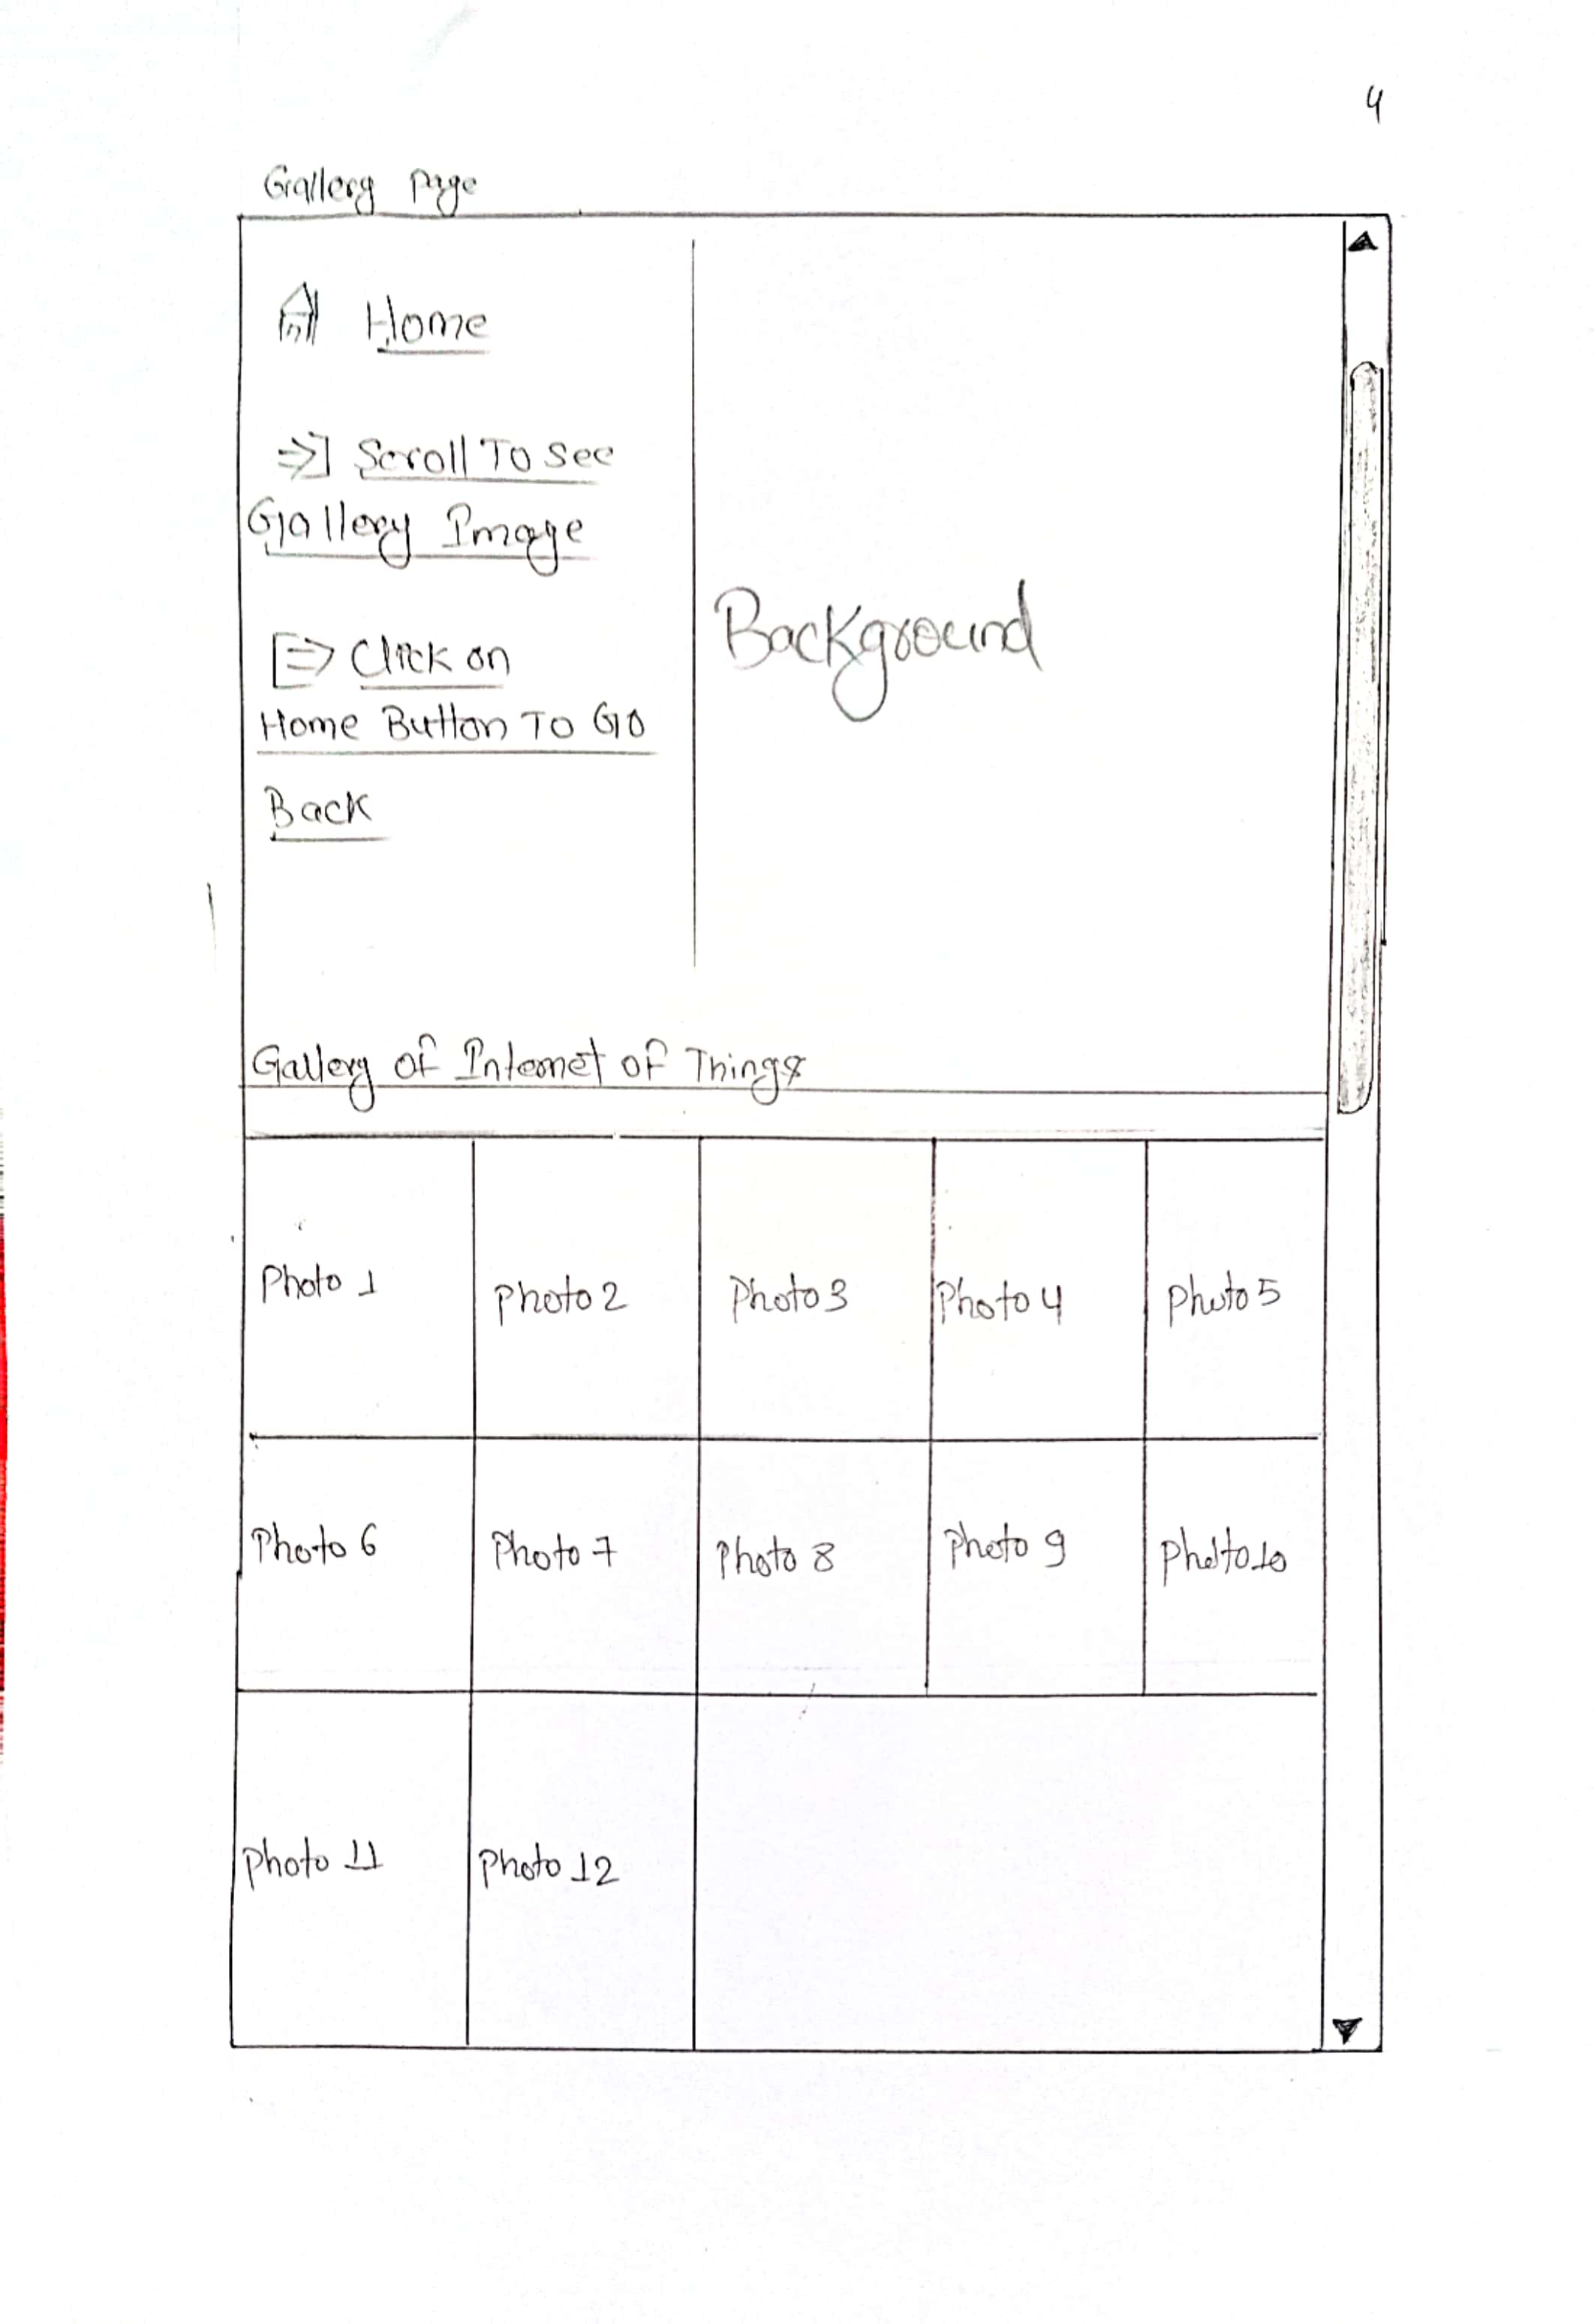 4
Gallery Page
Home
Scroll To See
Gallery Image
Click on
Home Button To Go
Back
Background
Gallery of Internet of Things
Photo 1
Photo 2
Photo 3
Photo 4
Photo 5
Photo 6
Photo 7
Photo 8
Photo 9
Photo 10
Photo 11
Photo 12